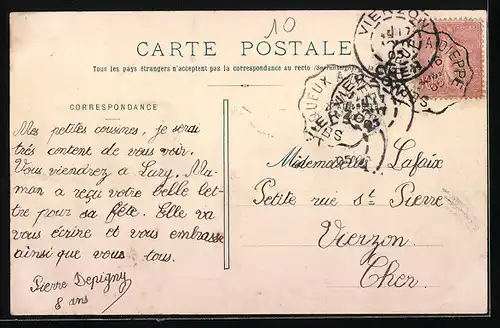 10
CARTE POSTALE
Tous les pays étrangers n'acceptent pas la correspondance au recto
CORRESPONDANCE
Mes petites cousines, je serai
très content de vous voir.
Vous viendrez à Lury. Ma-
man a reçu votre belle let-
tre pour sa fête. Elle va
vous écrire et vous embrasse
ainsi que vous tous.
Pierre Depigny
8 ans
VIERZON
DIEPPE
Mesdemoiselles Lafaix
Petite rue St Pierre
Vierzon
Cher